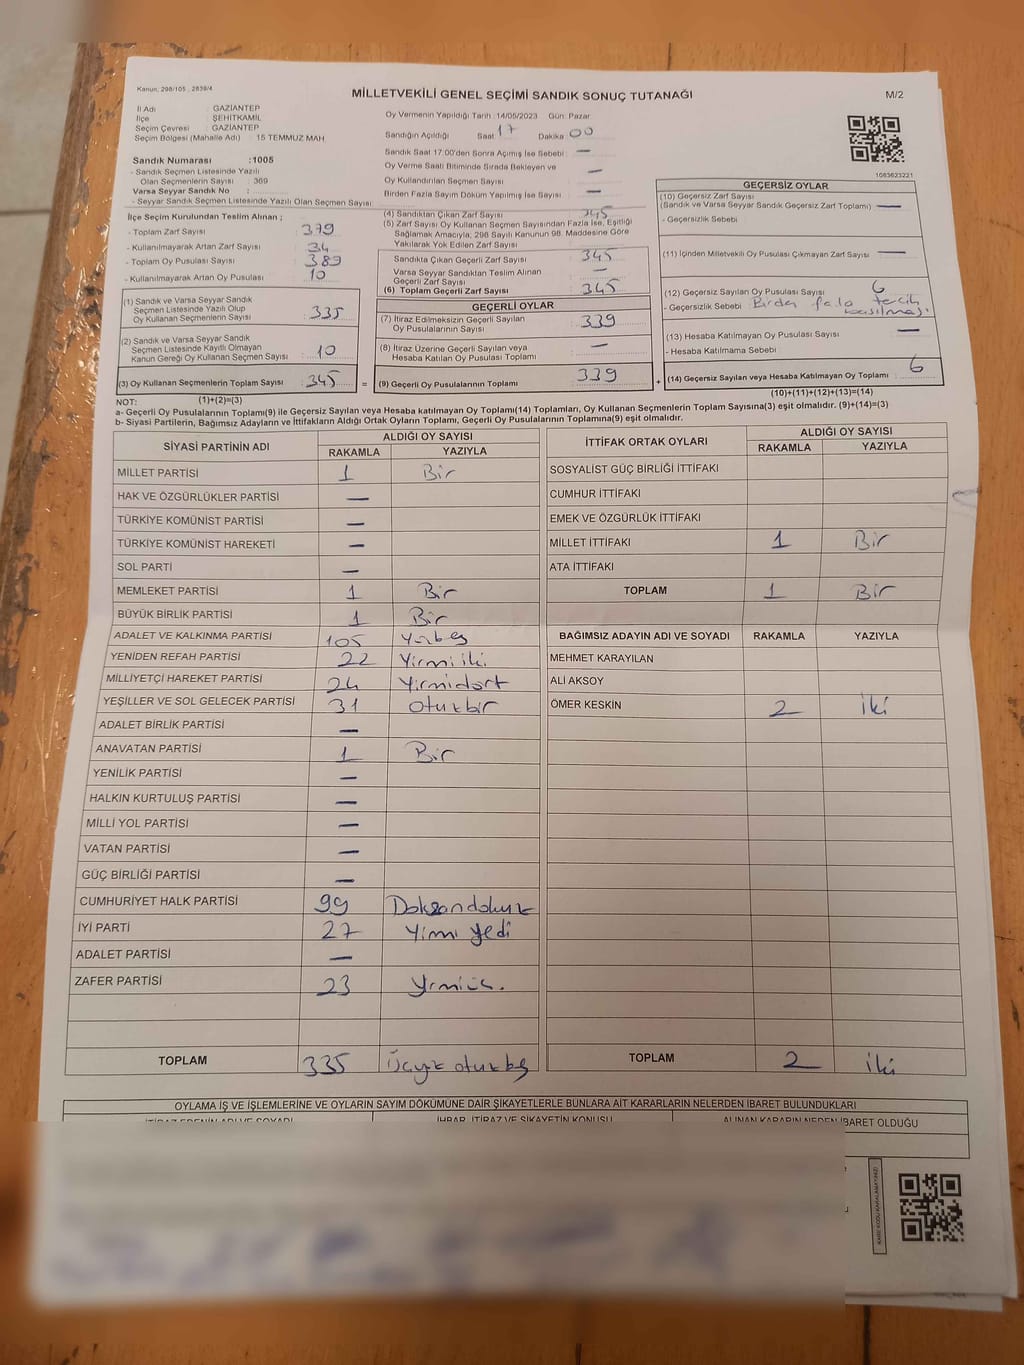 Kanun: 298/105 , 2839/4
MİLLETVEKİLİ GENEL SEÇİMİ SANDIK SONUÇ TUTANAĞI
M/2
İl Adı : GAZİANTEP
İlçe : ŞEHİTKAMİL
Seçim Çevresi : GAZİANTEP
Seçim Bölgesi (Mahalle Adı) : 15 TEMMUZ MAH
Sandık Numarası :1005
- Sandık Seçmen Listesinde Yazılı
Olan Seçmenlerin Sayısı : 369
Varsa Seyyar Sandık No :
- Seyyar Sandık Seçmen Listesinde Yazılı Olan Seçmen Sayısı :
Oy Vermenin Yapıldığı Tarih :14/05/2023 Gün: Pazar
Sandığın Açıldığı Saat 17 Dakika 00
Sandık Saat 17:00'den Sonra Açımış İse Sebebi : —
Oy Verme Saati Bitiminde Sırada Bekleyen ve
Oy Kullandırılan Seçmen Sayısı : —
Birden Fazla Sayım Döküm Yapılmış İse Sayısı : —
1083623221
İlçe Seçim Kurulundan Teslim Alınan ;
- Toplam Zarf Sayısı : 379
- Kullanılmayarak Artan Zarf Sayısı : 34
- Toplam Oy Pusulası Sayısı : 389
- Kullanılmayarak Artan Oy Pusulası : 10
(1) Sandık ve Varsa Seyyar Sandık
Seçmen Listesinde Yazılı Olup
Oy Kullanan Seçmenlerin Sayısı : 335
(2) Sandık ve Varsa Seyyar Sandık
Seçmen Listesinde Kayıtlı Olmayan
Kanun Gereği Oy Kullanan Seçmen Sayısı : 10
(3) Oy Kullanan Seçmenlerin Toplam Sayısı : 345 =
(4) Sandıktan Çıkan Zarf Sayısı : 345
(5) Zarf Sayısı Oy Kullanan Seçmen Sayısından Fazla İse, Eşitliği
Sağlamak Amacıyla, 298 Sayılı Kanunun 98. Maddesine Göre
Yakılarak Yok Edilen Zarf Sayısı :
Sandıkta Çıkan Geçerli Zarf Sayısı : 345
Varsa Seyyar Sandıktan Teslim Alınan
Geçerli Zarf Sayısı : —
(6) Toplam Geçerli Zarf Sayısı : 345
GEÇERLİ OYLAR
(7) İtiraz Edilmeksizin Geçerli Sayılan
Oy Pusulalarının Sayısı : 339
(8) İtiraz Üzerine Geçerli Sayılan veya
Hesaba Katılan Oy Pusulası Toplamı : —
(9) Geçerli Oy Pusulalarının Toplamı : 339 +
GEÇERSİZ OYLAR
(10) Geçersiz Zarf Sayısı
(Sandık ve Varsa Seyyar Sandık Geçersiz Zarf Toplamı) : —
- Geçersizlik Sebebi :
(11) İçinden Milletvekili Oy Pusulası Çıkmayan Zarf Sayısı : —
(12) Geçersiz Sayılan Oy Pusulası Sayısı : 6
- Geçersizlik Sebebi : Birden fala tercih
basılması
(13) Hesaba Katılmayan Oy Pusulası Sayısı : —
- Hesaba Katılmama Sebebi :
(14) Geçersiz Sayılan veya Hesaba Katılmayan Oy Toplamı : 6
NOT: (1)+(2)=(3)
(10)+(11)+(12)+(13)=(14)
a- Geçerli Oy Pusulalarının Toplamı(9) ile Geçersiz Sayılan veya Hesaba katılmayan Oy Toplamı(14) Toplamları, Oy Kullanan Seçmenlerin Toplam Sayısına(3) eşit olmalıdır. (9)+(14)=(3)
b- Siyasi Partilerin, Bağımsız Adayların ve İttifakların Aldığı Ortak Oyların Toplamı, Geçerli Oy Pusulalarının Toplamına(9) eşit olmalıdır.
SİYASİ PARTİNİN ADI ALDIĞI OY SAYISI
RAKAMLA YAZIYLA
MİLLET PARTİSİ 1 Bir
HAK VE ÖZGÜRLÜKLER PARTİSİ —
TÜRKİYE KOMÜNİST PARTİSİ —
TÜRKİYE KOMÜNİST HAREKETİ —
SOL PARTİ —
MEMLEKET PARTİSİ 1 Bir
BÜYÜK BİRLİK PARTİSİ 1 Bir
ADALET VE KALKINMA PARTİSİ 105 Yüzbeş
YENİDEN REFAH PARTİSİ 22 Yirmi iki
MİLLİYETÇİ HAREKET PARTİSİ 24 Yirmidört
YEŞİLLER VE SOL GELECEK PARTİSİ 31 Otuzbir
ADALET BİRLİK PARTİSİ —
ANAVATAN PARTİSİ 1 Bir
YENİLİK PARTİSİ —
HALKIN KURTULUŞ PARTİSİ —
MİLLİ YOL PARTİSİ —
VATAN PARTİSİ —
GÜÇ BİRLİĞİ PARTİSİ —
CUMHURİYET HALK PARTİSİ 99 Doksandokuz
İYİ PARTİ 27 Yirmi yedi
ADALET PARTİSİ —
ZAFER PARTİSİ 23 Yirmiüç.
TOPLAM 335 Üçyüz otuzbeş
İTTİFAK ORTAK OYLARI ALDIĞI OY SAYISI
RAKAMLA YAZIYLA
SOSYALİST GÜÇ BİRLİĞİ İTTİFAKI
CUMHUR İTTİFAKI
EMEK VE ÖZGÜRLÜK İTTİFAKI
MİLLET İTTİFAKI 1 Bir
ATA İTTİFAKI
TOPLAM 1 Bir
BAĞIMSIZ ADAYIN ADI VE SOYADI RAKAMLA YAZIYLA
MEHMET KARAYILAN
ALİ AKSOY
ÖMER KESKİN 2 İki
TOPLAM 2 İki
OYLAMA İŞ VE İŞLEMLERİNE VE OYLARIN SAYIM DÖKÜMÜNE DAİR ŞİKAYETLERLE BUNLARA AİT KARARLARIN NELERDEN İBARET BULUNDUKLARI
İTİRAZ EDENİN ADI VE SOYADI İHBAR, İTİRAZ VE ŞİKAYETİN KONUSU ALINAN KARARIN NEDEN İBARET OLDUĞU